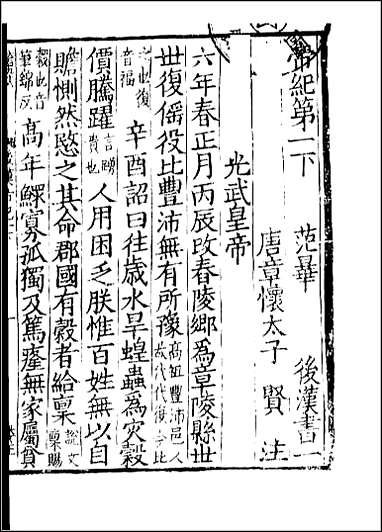 帝紀第一下　范曄　後漢書一
唐章懷太子　賢　注
光武皇帝
六年春正月丙辰改舂陵鄉為章陵縣世
世復傜役比豐沛無有所豫高祖豐沛邑人故代代復今比
之此復音福辛酉詔曰往歲水旱蝗蟲為灾穀
價騰躍言踴貴也人用困乏朕惟百姓無以自
贍惻然愍之其命郡國有穀者給稟說文稟賜
穀也音筆錦反高年鰥寡孤獨及篤癃無家屬貧